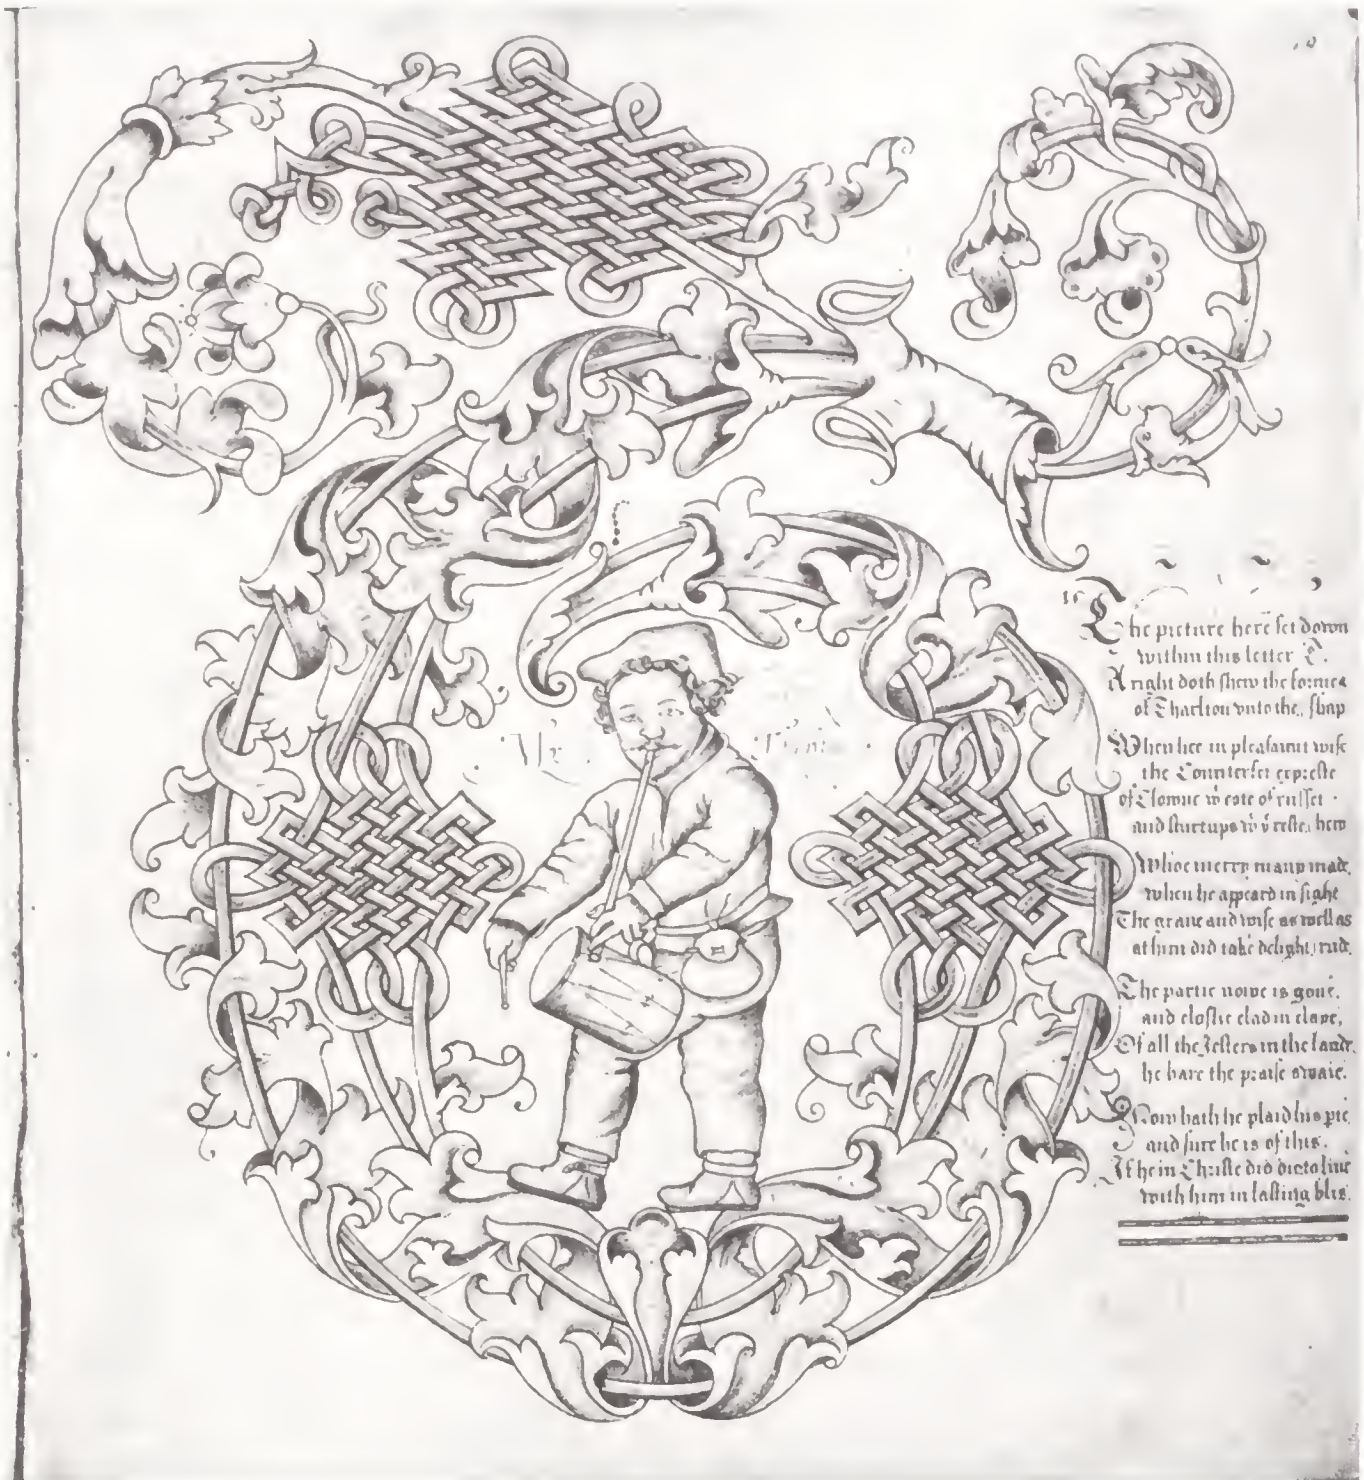 Mr Tharl
The picture here set down
within this letter T.
A right doth shew the forme &
of Tharlton vnto the, shap
When hee in pleasaunt wise
the Counterfet expreste
of Clowne wt cote of russet
and sturtups wt ye reste. hew
Whoe merry many made,
when he appeard in sight
The graue and wise as well as
at him did take delight, rude.
The partie nowe is gone,
and closlie clad in claye,
Of all the Jesters in the lande
he bare the praise awaie.
Now hath he plaid his pte
and sure he is of this.
If he in Christe did die to liue
with him in lasting blis.